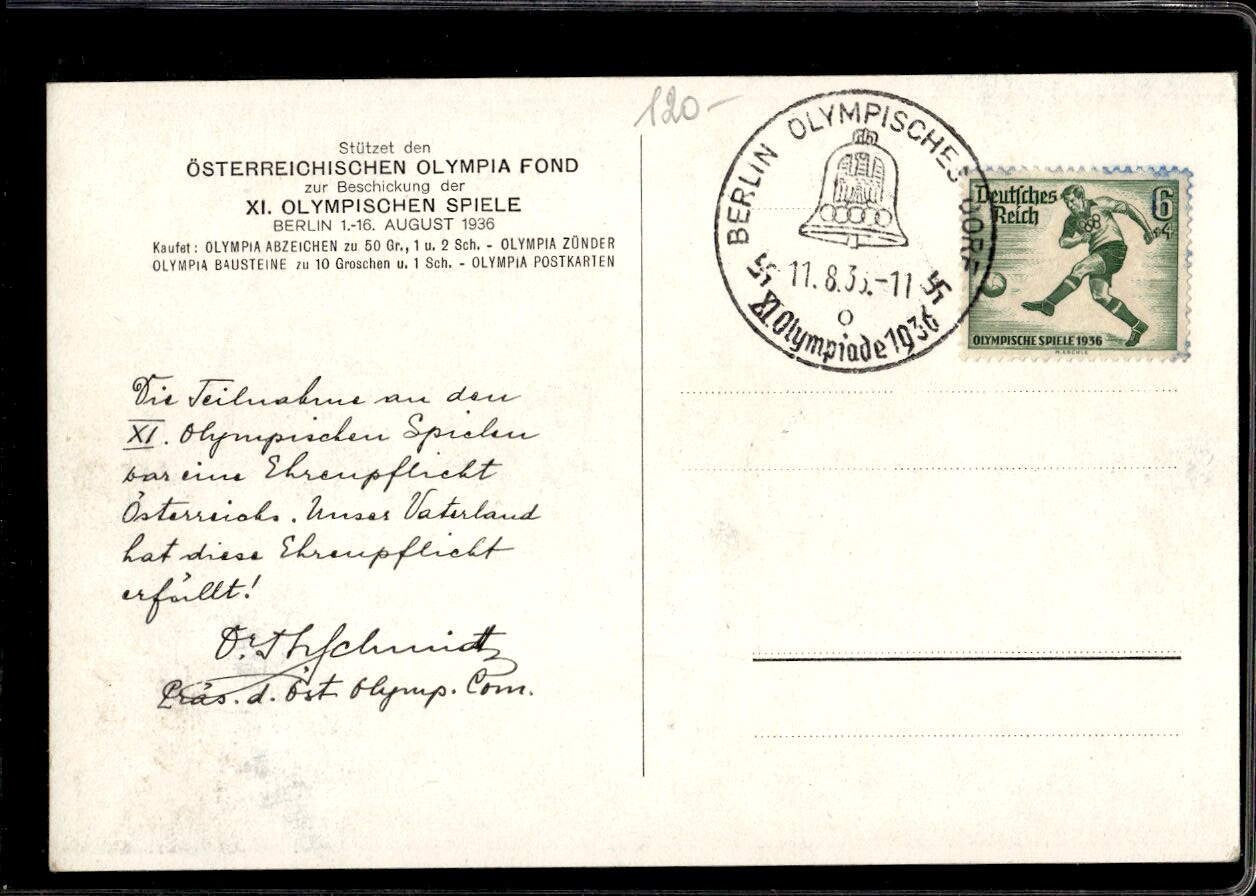 120-
Stützet den
ÖSTERREICHISCHEN OLYMPIA FOND
zur Beschickung der
XI. OLYMPISCHEN SPIELE
BERLIN 1.-16. AUGUST 1936
Kaufet: OLYMPIA ABZEICHEN zu 50 Gr., 1 u. 2 Sch. - OLYMPIA ZÜNDER
OLYMPIA BAUSTEINE zu 10 Groschen u. 1 Sch. - OLYMPIA POSTKARTEN
Die Teilnahme an den
XI. Olympischen Spielen
war eine Ehrenpflicht
Österreichs. Unser Vaterland
hat diese Ehrenpflicht
erfüllt!
Dr. Th Schmidt
Präs. d. Öst Olymp. Com.
BERLIN OLYMPISCHES DORF
11.8.36.-11
o
XI. Olympiade 1936
Deutsches
Reich
6
+4
OLYMPISCHE SPIELE 1936